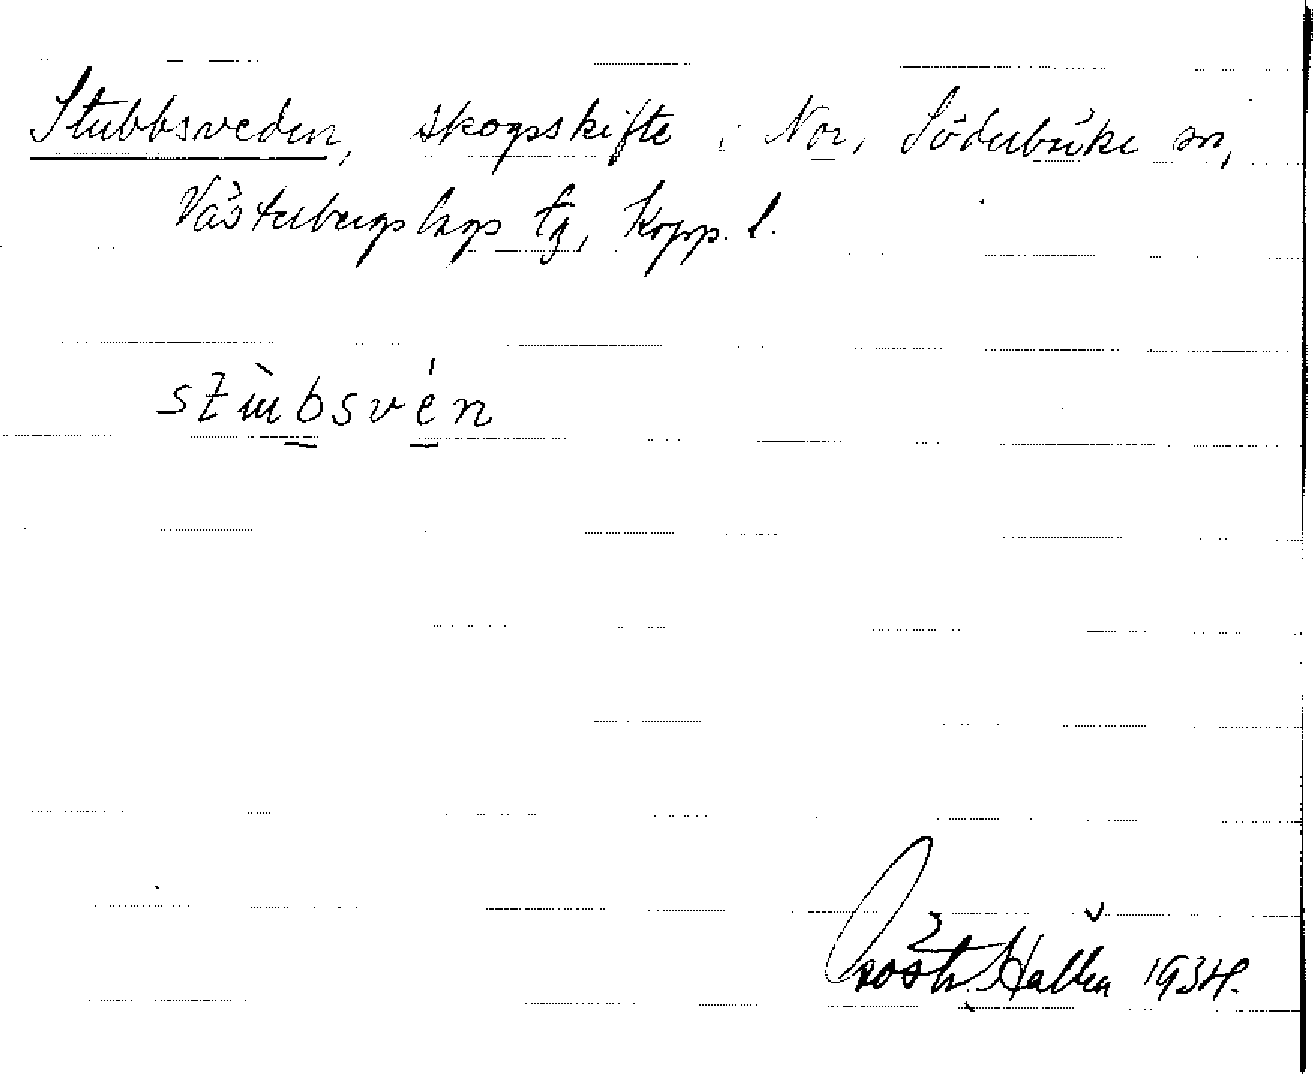 Stubbsveden, skogsskifte i Nor, Söderbärke sn,
Västerbergslags tg, Kopp. l.
stùbsvén
Hallén 1934.